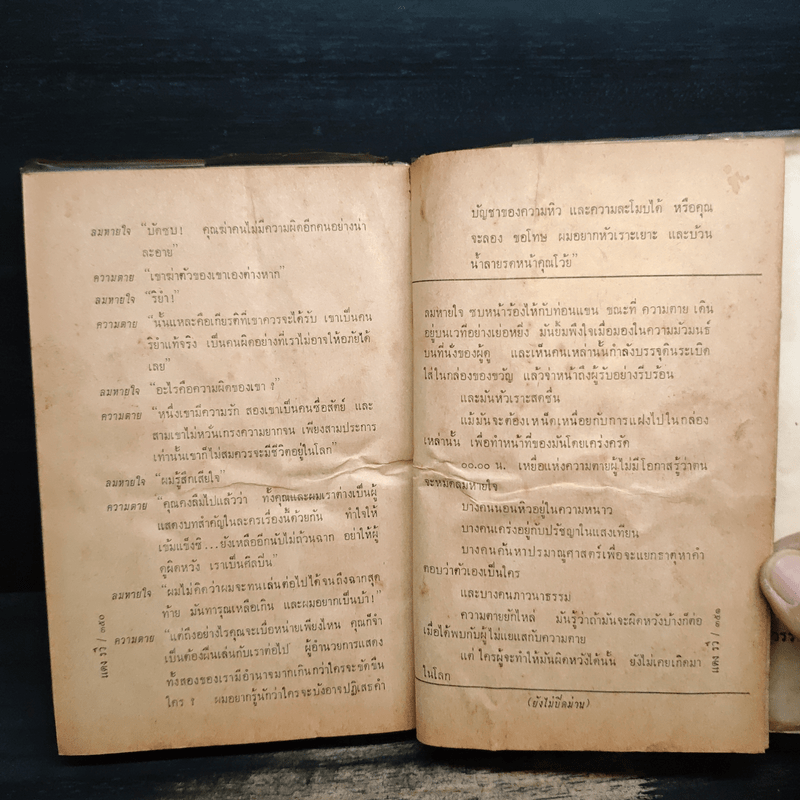 ลมหายใจ “บัดซบ! คุณฆ่าคนไม่มีความผิดอีกคนอย่างน่า
ละอาย”
ความตาย “เขาฆ่าตัวของเขาเองต่างหาก”
ลมหายใจ “ริยำ!”
ความตาย “นั้นแหละคือเกียรติที่เขาควรจะได้รับ เขาเป็นคน
ริยำแท้จริง เป็นคนผิดอย่างที่เราไม่อาจให้อภัยได้
เลย”
ลมหายใจ “อะไรคือความผิดของเขา ?
ความตาย “หนึ่งเขามีความรัก สองเขาเป็นคนซื่อสัตย์ และ
สามเขาไม่หวั่นเกรงความยากจน เพียงสามประการ
เท่านั้นเขาก็ไม่สมควรจะมีชีวิตอยู่ในโลก”
ลมหายใจ “ผมรู้สึกเสียใจ”
ความตาย “คุณคงลืมไปแล้วว่า ทั้งคุณและผมเราต่างเป็นผู้
แสดงบทสำคัญในละครเรื่องนี้ด้วยกัน ทำใจให้
เข้มแข็งซิ...ยังเหลืออีกนับไม่ถ้วนฉาก อย่าให้ผู้
ดูผิดหวัง เราเป็นศิลปิน”
ลมหายใจ “ผมไม่คิดว่าผมจะทนเล่นต่อไปได้จนถึงฉากสุด
ท้าย มันทารุณเหลือเกิน และผมอยากเป็นบ้า!”
ความตาย “แต่ถึงอย่างไรคุณจะเบื่อหน่ายเพียงไหน คุณก็จำ
เป็นต้องฝืนเล่นกับเราต่อไป ผู้อำนวยการแสดง
ทั้งสองของเรามีอำนาจมากเกินกว่าใครจะขัดขืน
ใคร ? ผมอยากรู้นักว่าใครจะบังอาจปฏิเสธคำ
แดง รวี / ๓๕๐
บัญชาของความหิว และความละโมบได้ หรือคุณ
จะลอง ขอโทษ ผมอยากหัวเราะเยาะ และบ้วน
น้ำลายรดหน้าคุณโว้ย”
ลมหายใจ ซบหน้าร้องไห้กับท่อนแขน ขณะที่ ความตาย เดิน
อยู่บนเวทีอย่างเย่อหยิ่ง มันยิ้มพึงใจเมื่อมองในความมัวมนธ์
บนที่นั่งของผู้ดู และเห็นคนเหล่านั้นกำลังบรรจุดินระเบิด
ใส่ในกล่องของขวัญ แล้วจำหน้าถึงผู้รับอย่างรีบร้อน
และมันหัวเราะสดชื่น
แม้มันจะต้องเหน็ดเหนื่อยกับการแฝงไปในกล่อง
เหล่านั้น เพื่อทำหน้าที่ของมันโดยเคร่งครัด
๐๐.๐๐ น. เหยื่อแห่งความตายผู้ไม่มีโอกาสรู้ว่าตน
จะหมดลมหายใจ
บางคนนอนหิวอยู่ในความหนาว
บางคนเคร่งอยู่กับปรัชญาในแสงเทียน
บางคนค้นหาปรมาณูศาสตร์เพื่อจะแยกธาตุหาคำ
ตอบว่าตัวเองเป็นใคร
และบางคนภาวนาธรรม
ความตายยักไหล่ มันรู้ว่าถ้ามันจะผิดหวังบ้างก็ต่อ
เมื่อได้พบกับผู้ไม่แยแสกับความตาย
แต่ ใครผู้จะทำให้มันผิดหวังได้นั้น ยังไม่เคยเกิดมา
ในโลก
(ยังไม่ปิดม่าน)
แดง รวี / ๓๕๑